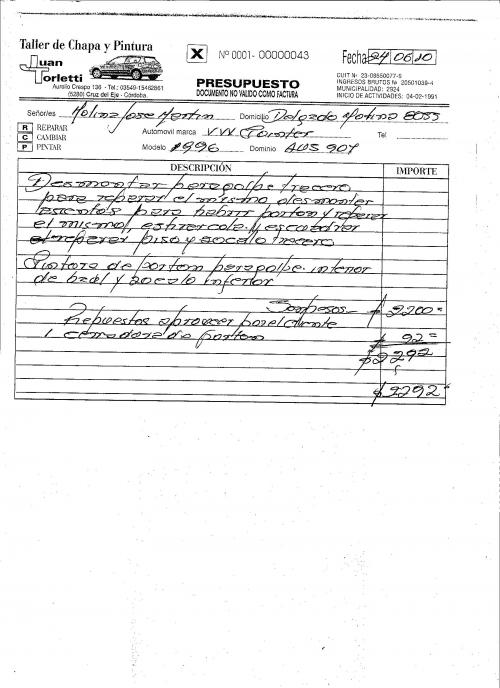 Taller de Chapa y Pintura
Juan Torletti
Aurelio Crespo 136 - Tel.: 03549-15462861
(5280) Cruz del Eje - Córdoba.
X
Nº 0001- 00000043
PRESUPUESTO
DOCUMENTO NO VALIDO COMO FACTURA
Fecha 24 06 10
CUIT Nº 23-08550077-9
INGRESOS BRUTOS Nº 20501039-4
MUNICIPALIDAD: 2924
INICIO DE ACTIVIDADES: 04-02-1991
Señor/es Molina Jose Martin Domicilio Delgado Molina
R REPARAR Automovil marca VW Pointer Tel
C CAMBIAR
P PINTAR Modelo 1996 Dominio AUS 907
DESCRIPCIÓN IMPORTE
Desmontar paragolpe trecero
para reparar el mismo desmontar
para habrir porton y reparar
el mismo
reparar piso y zocalo trecero
Pintura de porton paragolpe. interior
de baul y zocalo inferior
Son pesos $ 2200=
Repuestos a proveer por el cliente
1 cerradura de porton $ 92=
$ 2292
$ 2292=